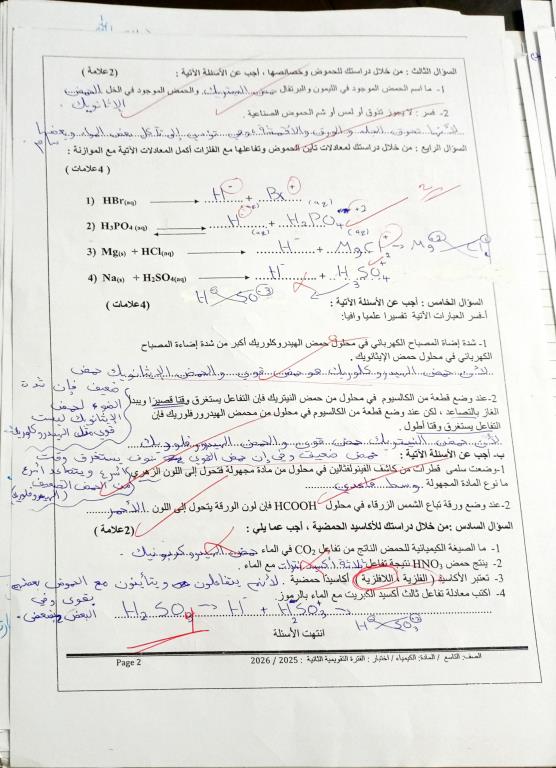 السؤال الثالث : من خلال دراستك للحموض وخصائصها ، أجب عن الأسئلة الآتية : (2علامة )
1- ما اسم الحمض الموجود في الليمون والبرتقال حمض الستريك والحمض الموجود في الخل الحمض الإيثانويك .
2- فسر : لا يجوز تذوق أو لمس أو شم الحموض الصناعية .
لأنها تحرق الجلد والورق والأقمشة وهي تؤدي إلى تآكل بعض المواد وبعضها سام
السؤال الرابع : من خلال دراستك لمعادلات تأين الحموض وتفاعلها مع الفلزات أكمل المعادلات الآتية مع الموازنة :
( 4علامات )
1) HBr(aq) → H⁻ (aq) + Br⁺ (aq)
2) H3PO4 (aq) ⇌ H⁻ (aq) + H2PO4 (aq) +2
3) Mg(s) + HCl(aq) → H⁻ + MgCl⁺ → Mg+2 Cl
4) Na(s) + H2SO4(aq) → H⁻ + H SO4
السؤال الخامس : أجب عن الأسئلة الآتية : (4علامات )
أ-فسر العبارات الآتية تفسيرا علميا وافيا:
1- شدة إضاءة المصباح الكهربائي في محلول حمض الهيدروكلوريك أكبر من شدة إضاءة المصباح
الكهربائي في محلول حمض الإيثانويك .
لأن حمض الهيدروكلوريك هو حمض قوي والحمض الإيثانويك حمض
ضعيف فإن شدة
الضوء لحمض
الإيثانويك ليست
قوي مثل الهيدروكلوريك
2-عند وضع قطعة من الكالسيوم في محلول من حمض النيتريك فإن التفاعل يستغرق وقتا قصيرا ويبدأ
الغاز بالتصاعد ، لكن عند وضع قطعة من الكالسيوم في محلول من محمض الهيدروفلوريك فإن
التفاعل يستغرق وقتا أطول .
لأن حمض النيتريك حمض قوي والحمض الهيدروفلوريك
حمض ضعيف وفي إن حمض القوي سوف يستغرق وقت
أسرع ويتصاعد أسرع
من الحمض الضعيف
(الهيدروفلوري)
ب- أجب عن الأسئلة الآتية :
1-وضعت سلمى قطرات من كاشف الفينولفثالين في محلول من مادة مجهولة فتحول إلى اللون الزهري
ما نوع المادة المجهولة وسط قاعدي
2-عند وضع ورقة تباع الشمس الزرقاء في محلول HCOOH فإن لون الورقة يتحول إلى اللون الأحمر
السؤال السادس :من خلال دراستك للأكاسيد الحمضية ، أجب عما يلي : (2علامة )
1- ما الصيغة الكيميائية للحمض الناتج من تفاعل CO2 في الماء حمض الهيدروكربونيك .
2- ينتج حمض HNO3 نتيجة تفاعل ثلاثة أكسيد النترات مع الماء .
3- تعتبر الأكاسيد ( الفلزية ، اللافلزية ) أكاسيدا حمضية . لأنهم يتفاعلون ويتأينون مع الحموض بعضهم
بقوى وفي
البعض بضعف
4- اكتب معادلة تفاعل ثالث أكسيد الكبريت مع الماء بالرموز.
H2SO4 → H⁻ + H2SO4 →
انتهت الأسئلة
الصف: التاسع / المادة: الكيمياء / اختبار : الفترة التقويمية الثانية : 2025 / 2026
Page 2